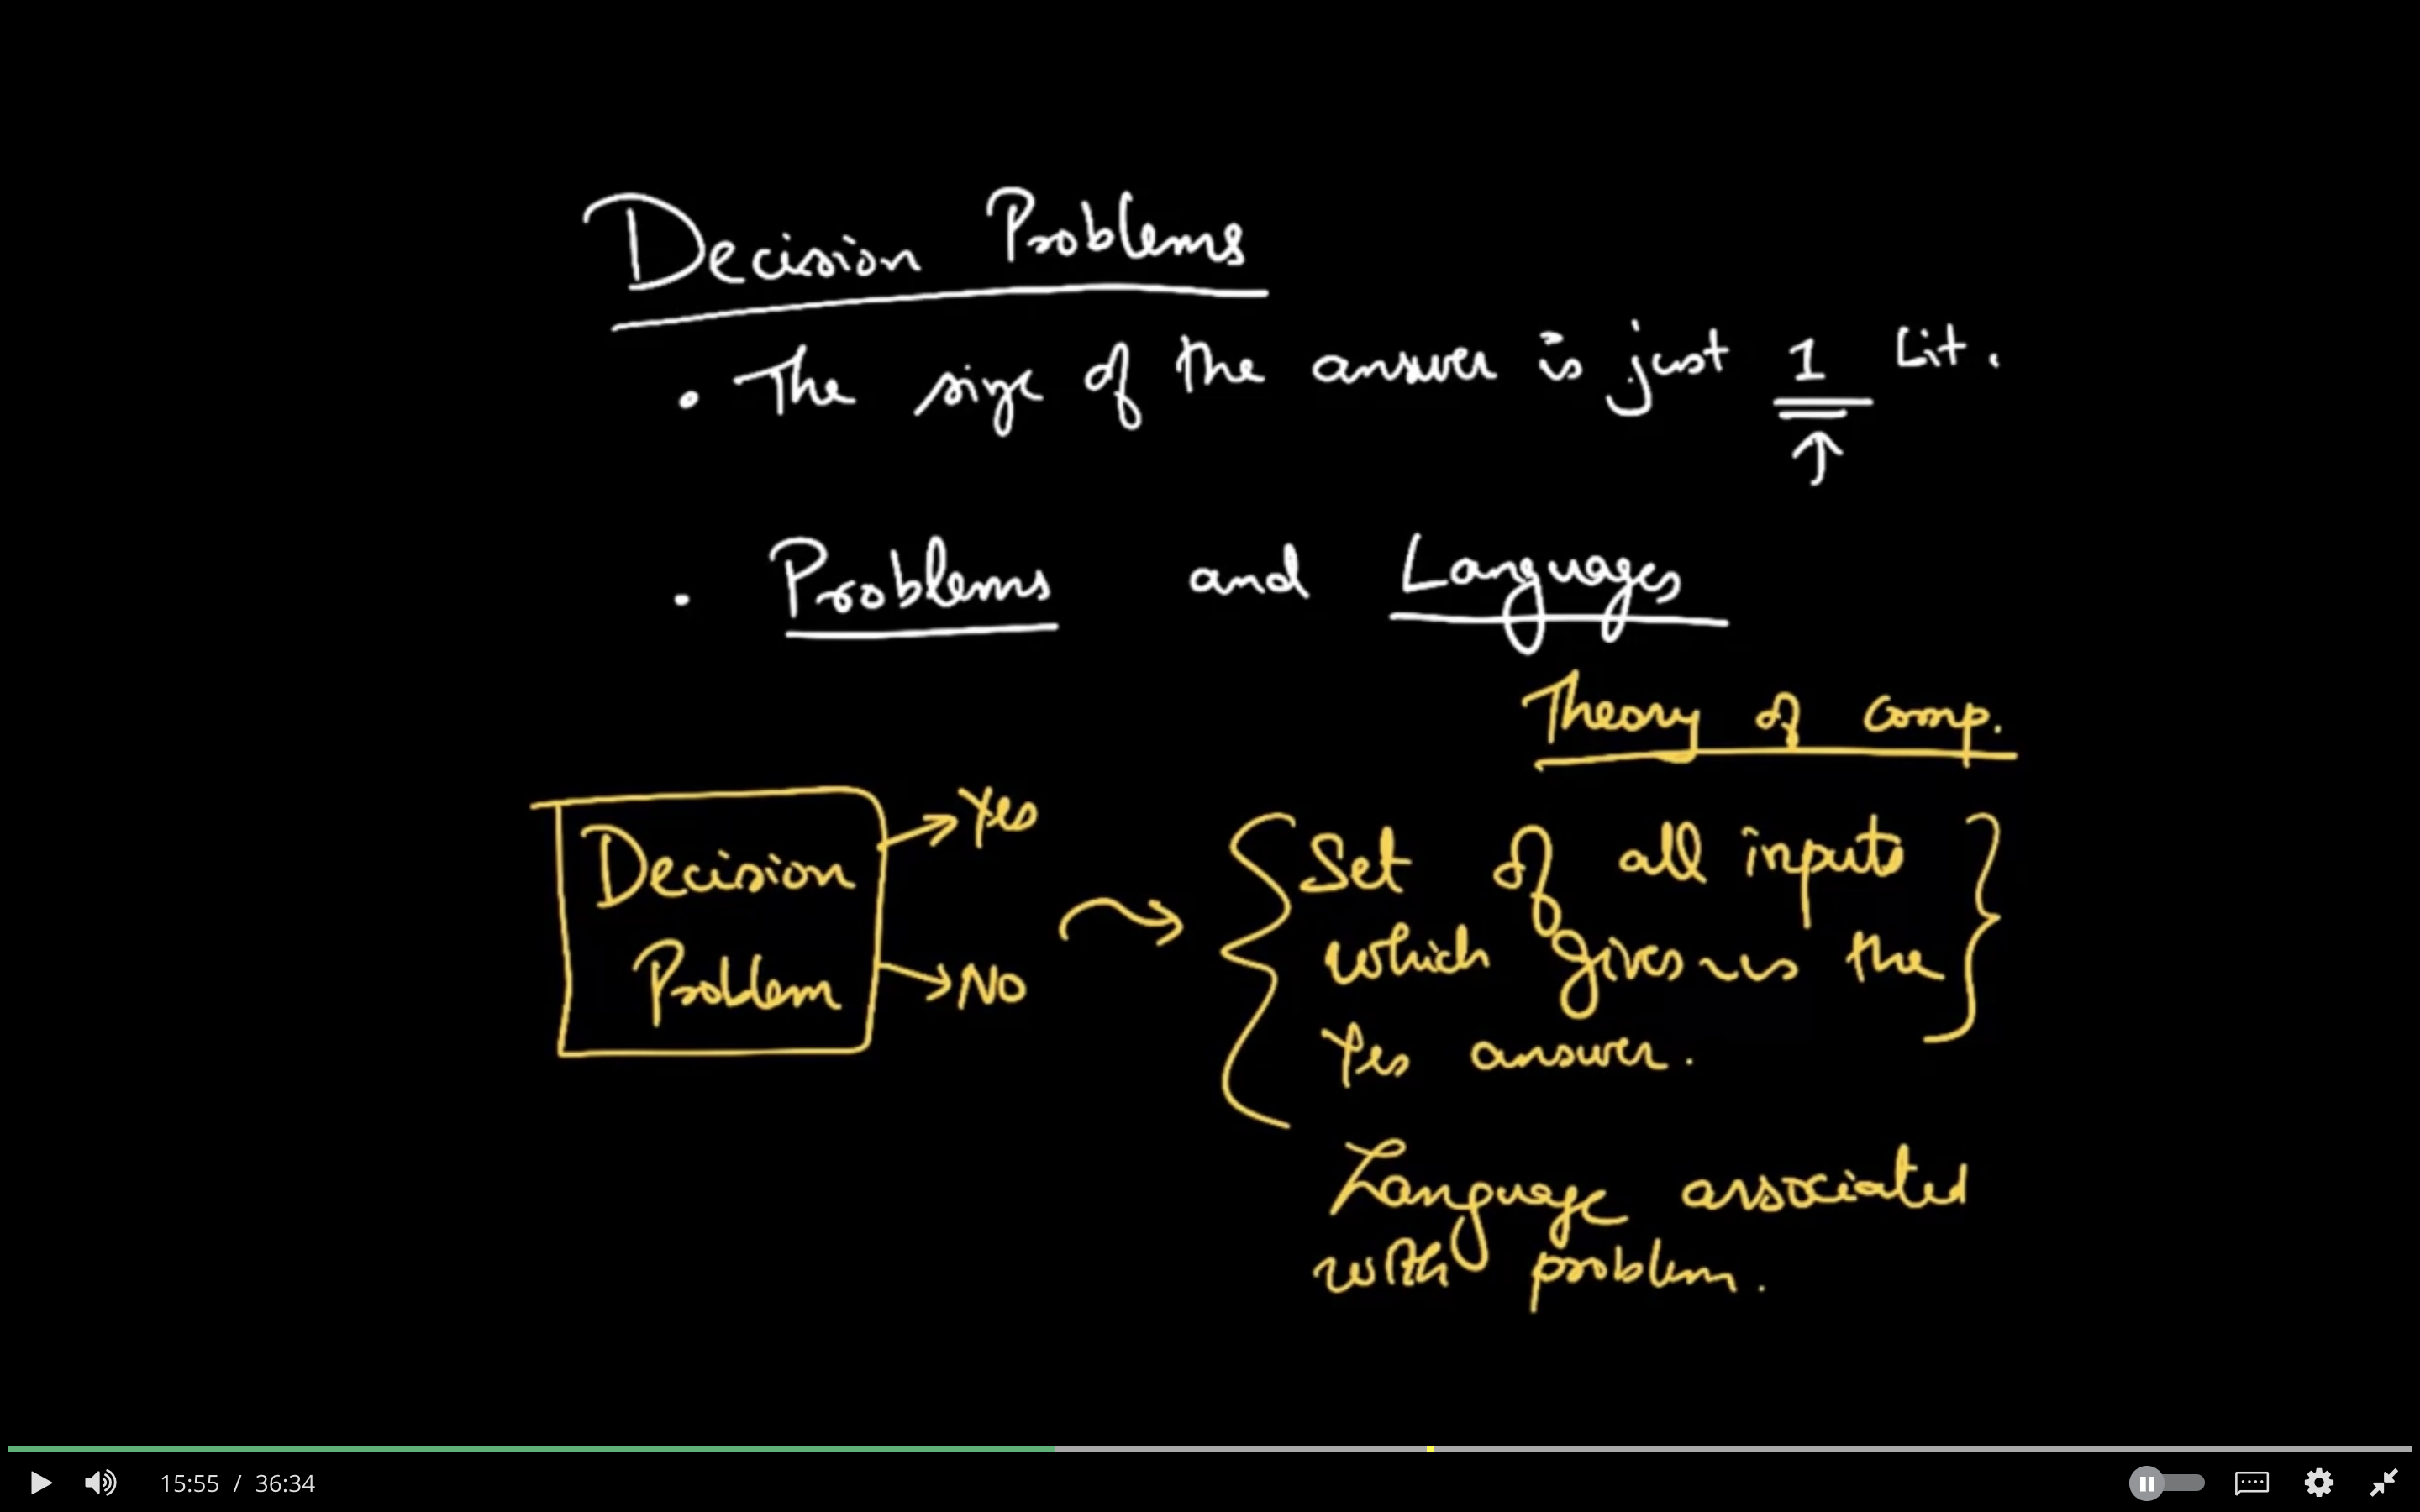 Decision Problems
• The size of the answer is just 1 bit.
• Problems and Languages
Theory of Comp.
Decision Problem
Yes
No
Set of all inputs
which gives us the
Yes answer.
Language associated
with problem.
15:55 / 36:34